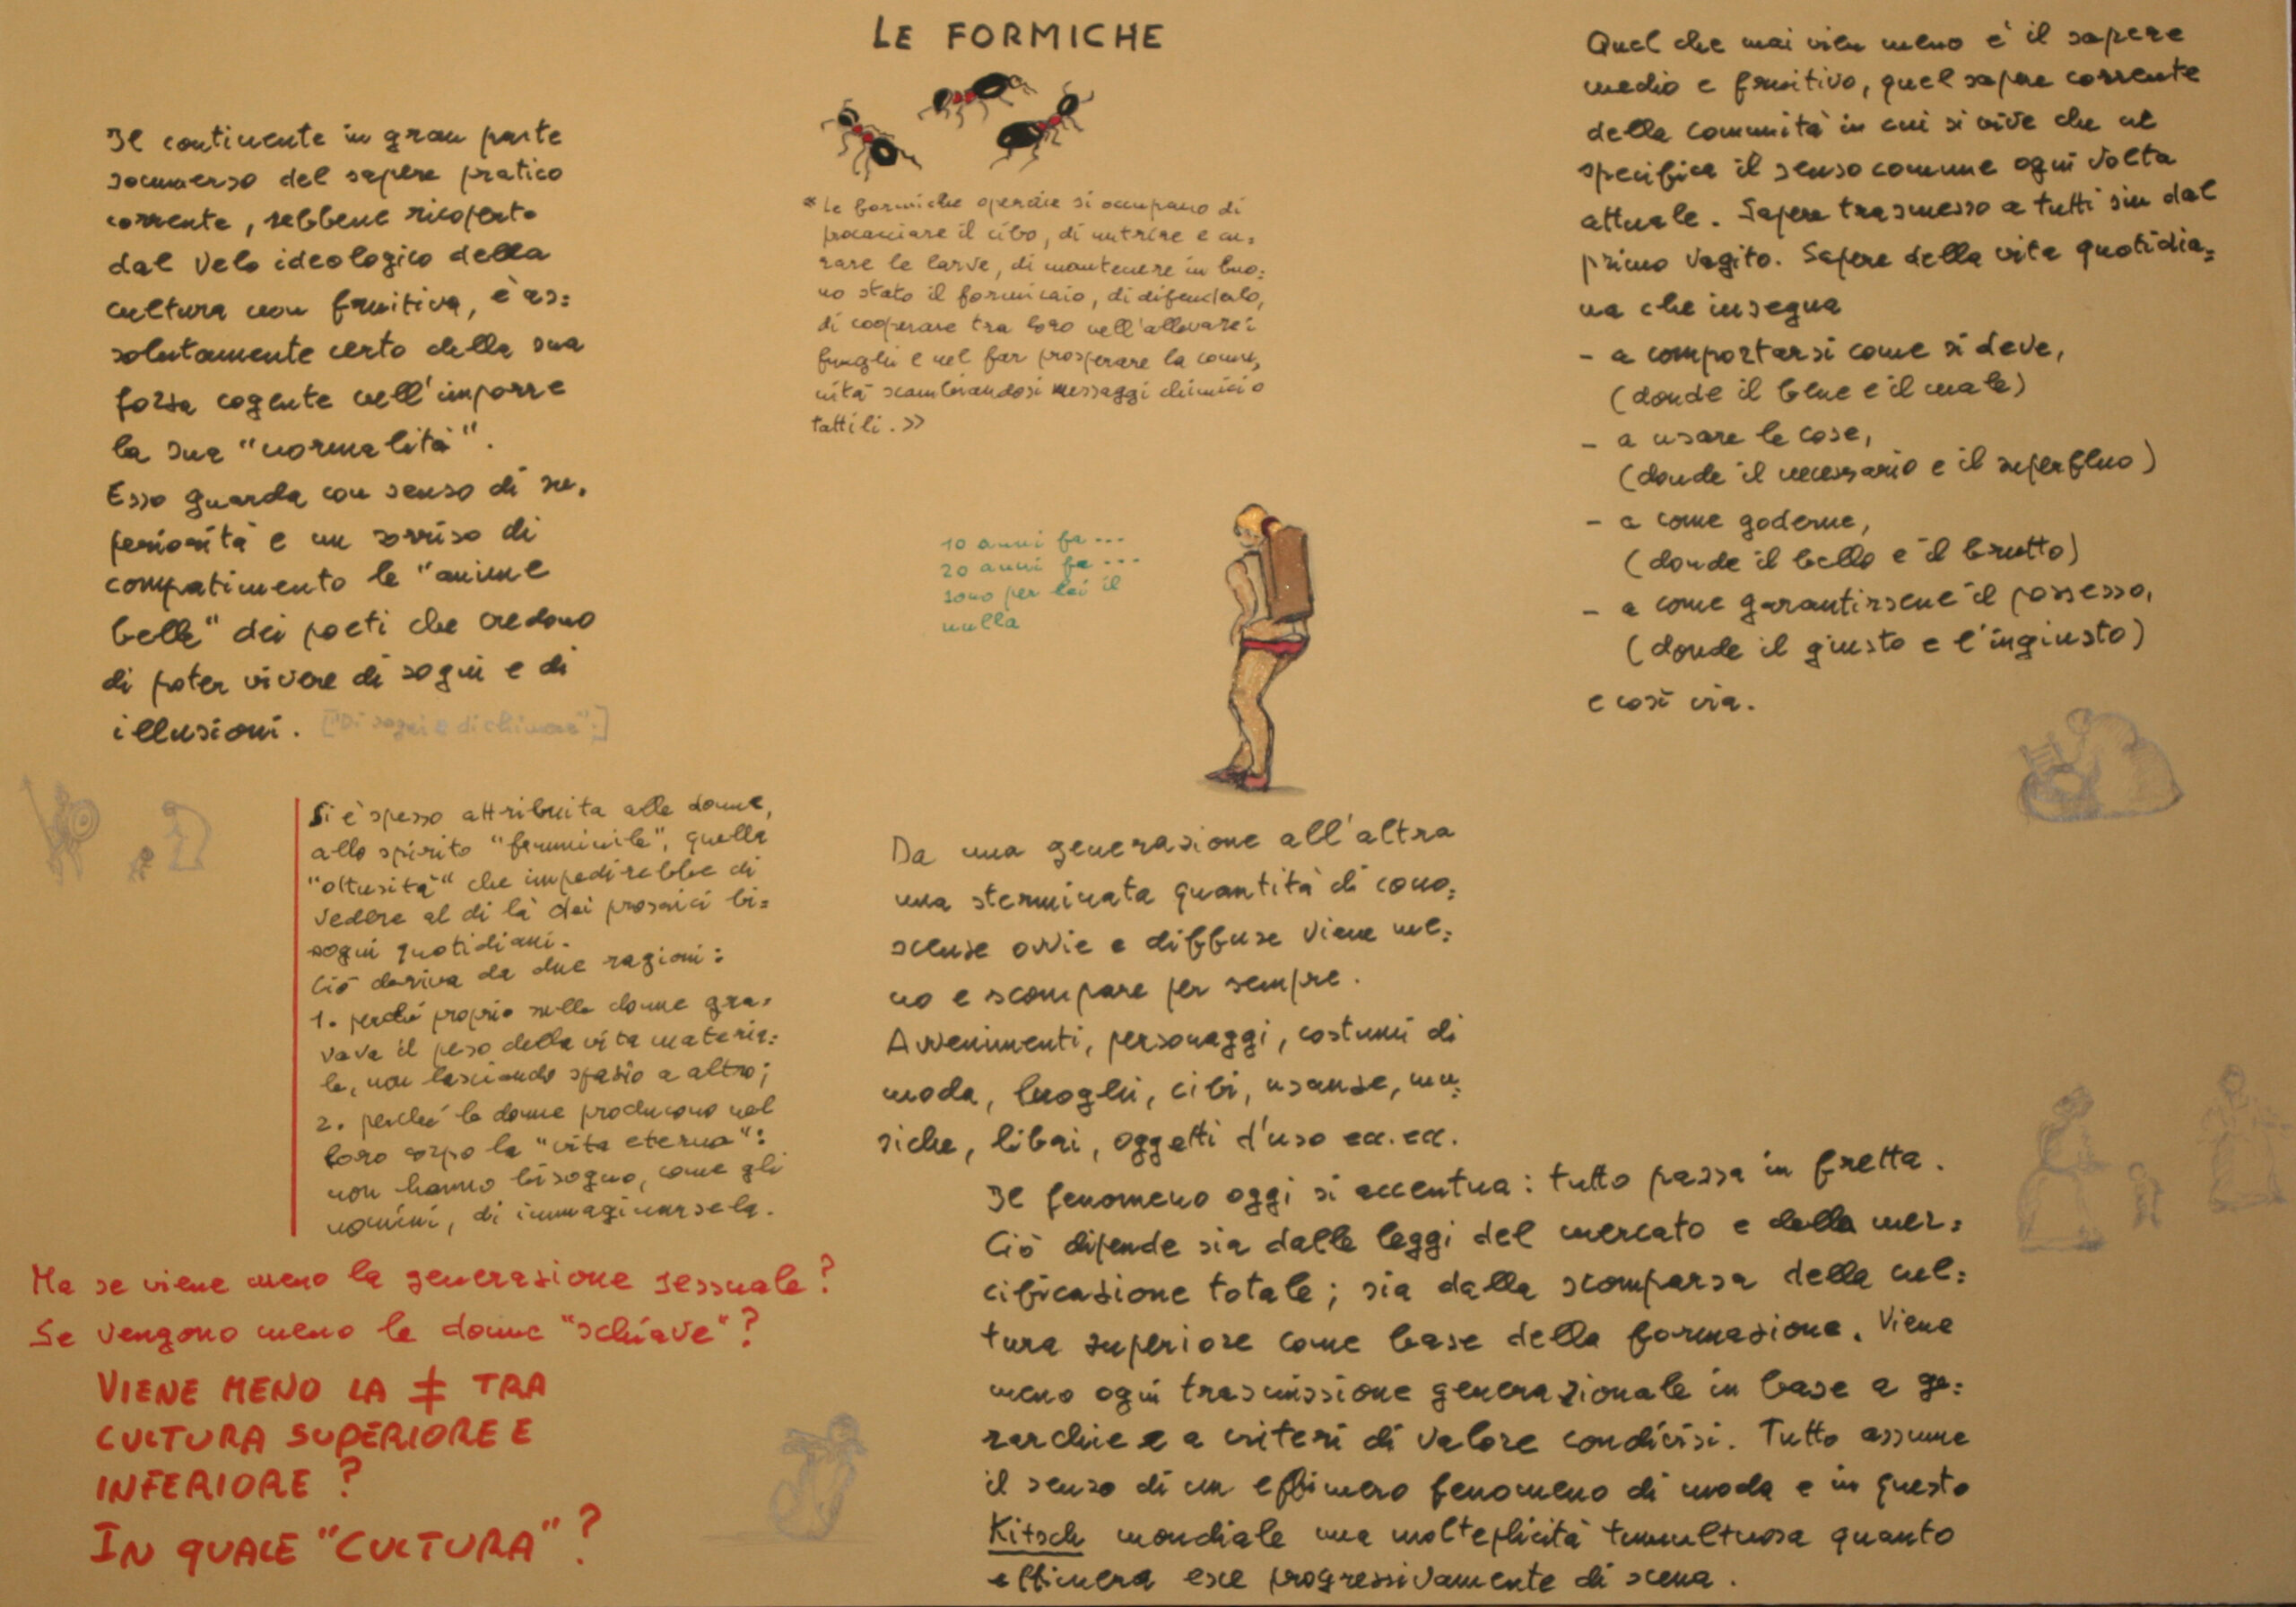 LE FORMICHE
Il continente in gran parte
sommerso del sapere pratico
corrente, sebbene ricoperto
dal velo ideologico della
cultura non fruitiva, è as=
solutamente certo della sua
forza cogente nell'imporre
la sua "normalità".
Esso guarda con senso di su=
periorità e un sorriso di
compatimento le "anime
belle" dei poeti che credono
di poter vivere di sogni e di
illusioni. ["Di sogni e di chimere".]
Si è spesso attribuita alle donne,
allo spirito "femminile", quella
"ottusità" che impedirebbe di
vedere al di là dei prosaici bi=
sogni quotidiani.
Ciò deriva da due ragioni:
1. perché proprio sulle donne gra=
vava il peso della vita materia=
le, non lasciando spazio a altro;
2. perché le donne producono nel
loro corpo la "vita eterna":
non hanno bisogno, come gli
uomini, di immaginarsela.
Ma se viene meno la generazione sessuale?
Se vengono meno le donne "schiave"?
VIENE MENO LA ≠ TRA
CULTURA SUPERIORE E
INFERIORE?
IN QUALE "CULTURA"?
«Le formiche operaie si occupano di
procacciare il cibo, di nutrire e cu=
rare le larve, di mantenere in buo=
no stato il formicaio, di difenderlo,
di cooperare tra loro nell'allevare i
funghi e nel far prosperare la comu=
nità scambiandosi messaggi chimici o
tattili.»
10 anni fa...
20 anni fa...
sono per lei il
nulla
Da una generazione all'altra
una sterminata quantità di cono=
scenze ovvie e diffuse viene me=
no e scompare per sempre.
Avvenimenti, personaggi, costumi di
moda, luoghi, cibi, usanze, mu=
siche, libri, oggetti d'uso ecc. ecc.
Il fenomeno oggi si accentua: tutto passa in fretta.
Ciò dipende sia dalle leggi del mercato e della mer=
cificazione totale; sia dalla scomparsa della cul=
tura superiore come base della formazione. Viene
meno ogni trasmissione generazionale in base a ge=
rarchie e a criteri di valore condivisi. Tutto assume
il senso di un effimero fenomeno di moda e in questo
Kitsch mondiale una molteplicità tumultuosa quanto
effimera esce progressivamente di scena.
Quel che mai vien meno è il sapere
medio e fruitivo, quel sapere corrente
della comunità in cui si vive che ne
specifica il senso comune ogni volta
attuale. Sapere trasmesso a tutti sin dal
primo vagito. Sapere della vita quotidia=
na che insegna
- a comportarsi come si deve,
(donde il bene e il male)
- a usare le cose,
(donde il necessario e il superfluo)
- a come goderne,
(donde il bello e il brutto)
- a come garantirsene il possesso,
(donde il giusto e l'ingiusto)
e così via.